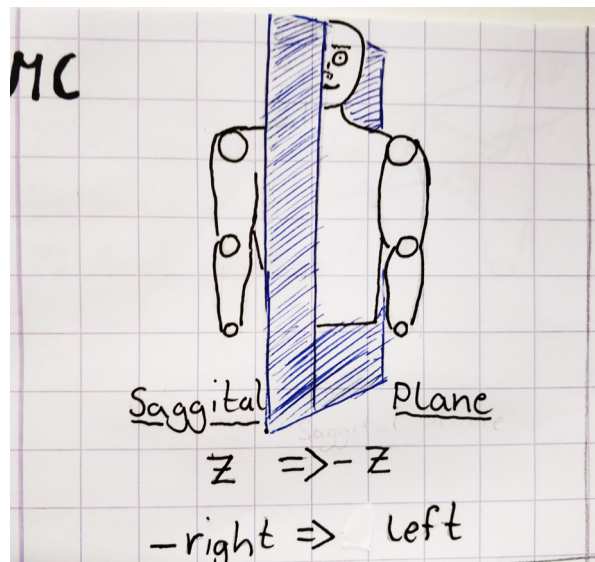 MC
Saggital Plane
Z => - Z
- right => left